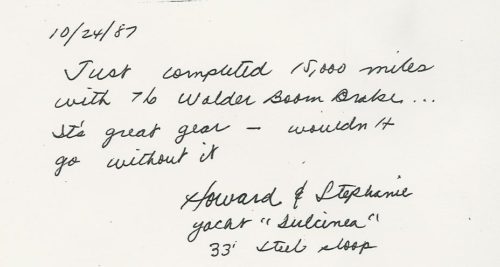 10/24/87
Just completed 15,000 miles
with 76 Walder Boom Brake...
It's great gear — wouldn't
go without it
Howard & Stephanie
yacht "Dulcinea"
33' steel sloop